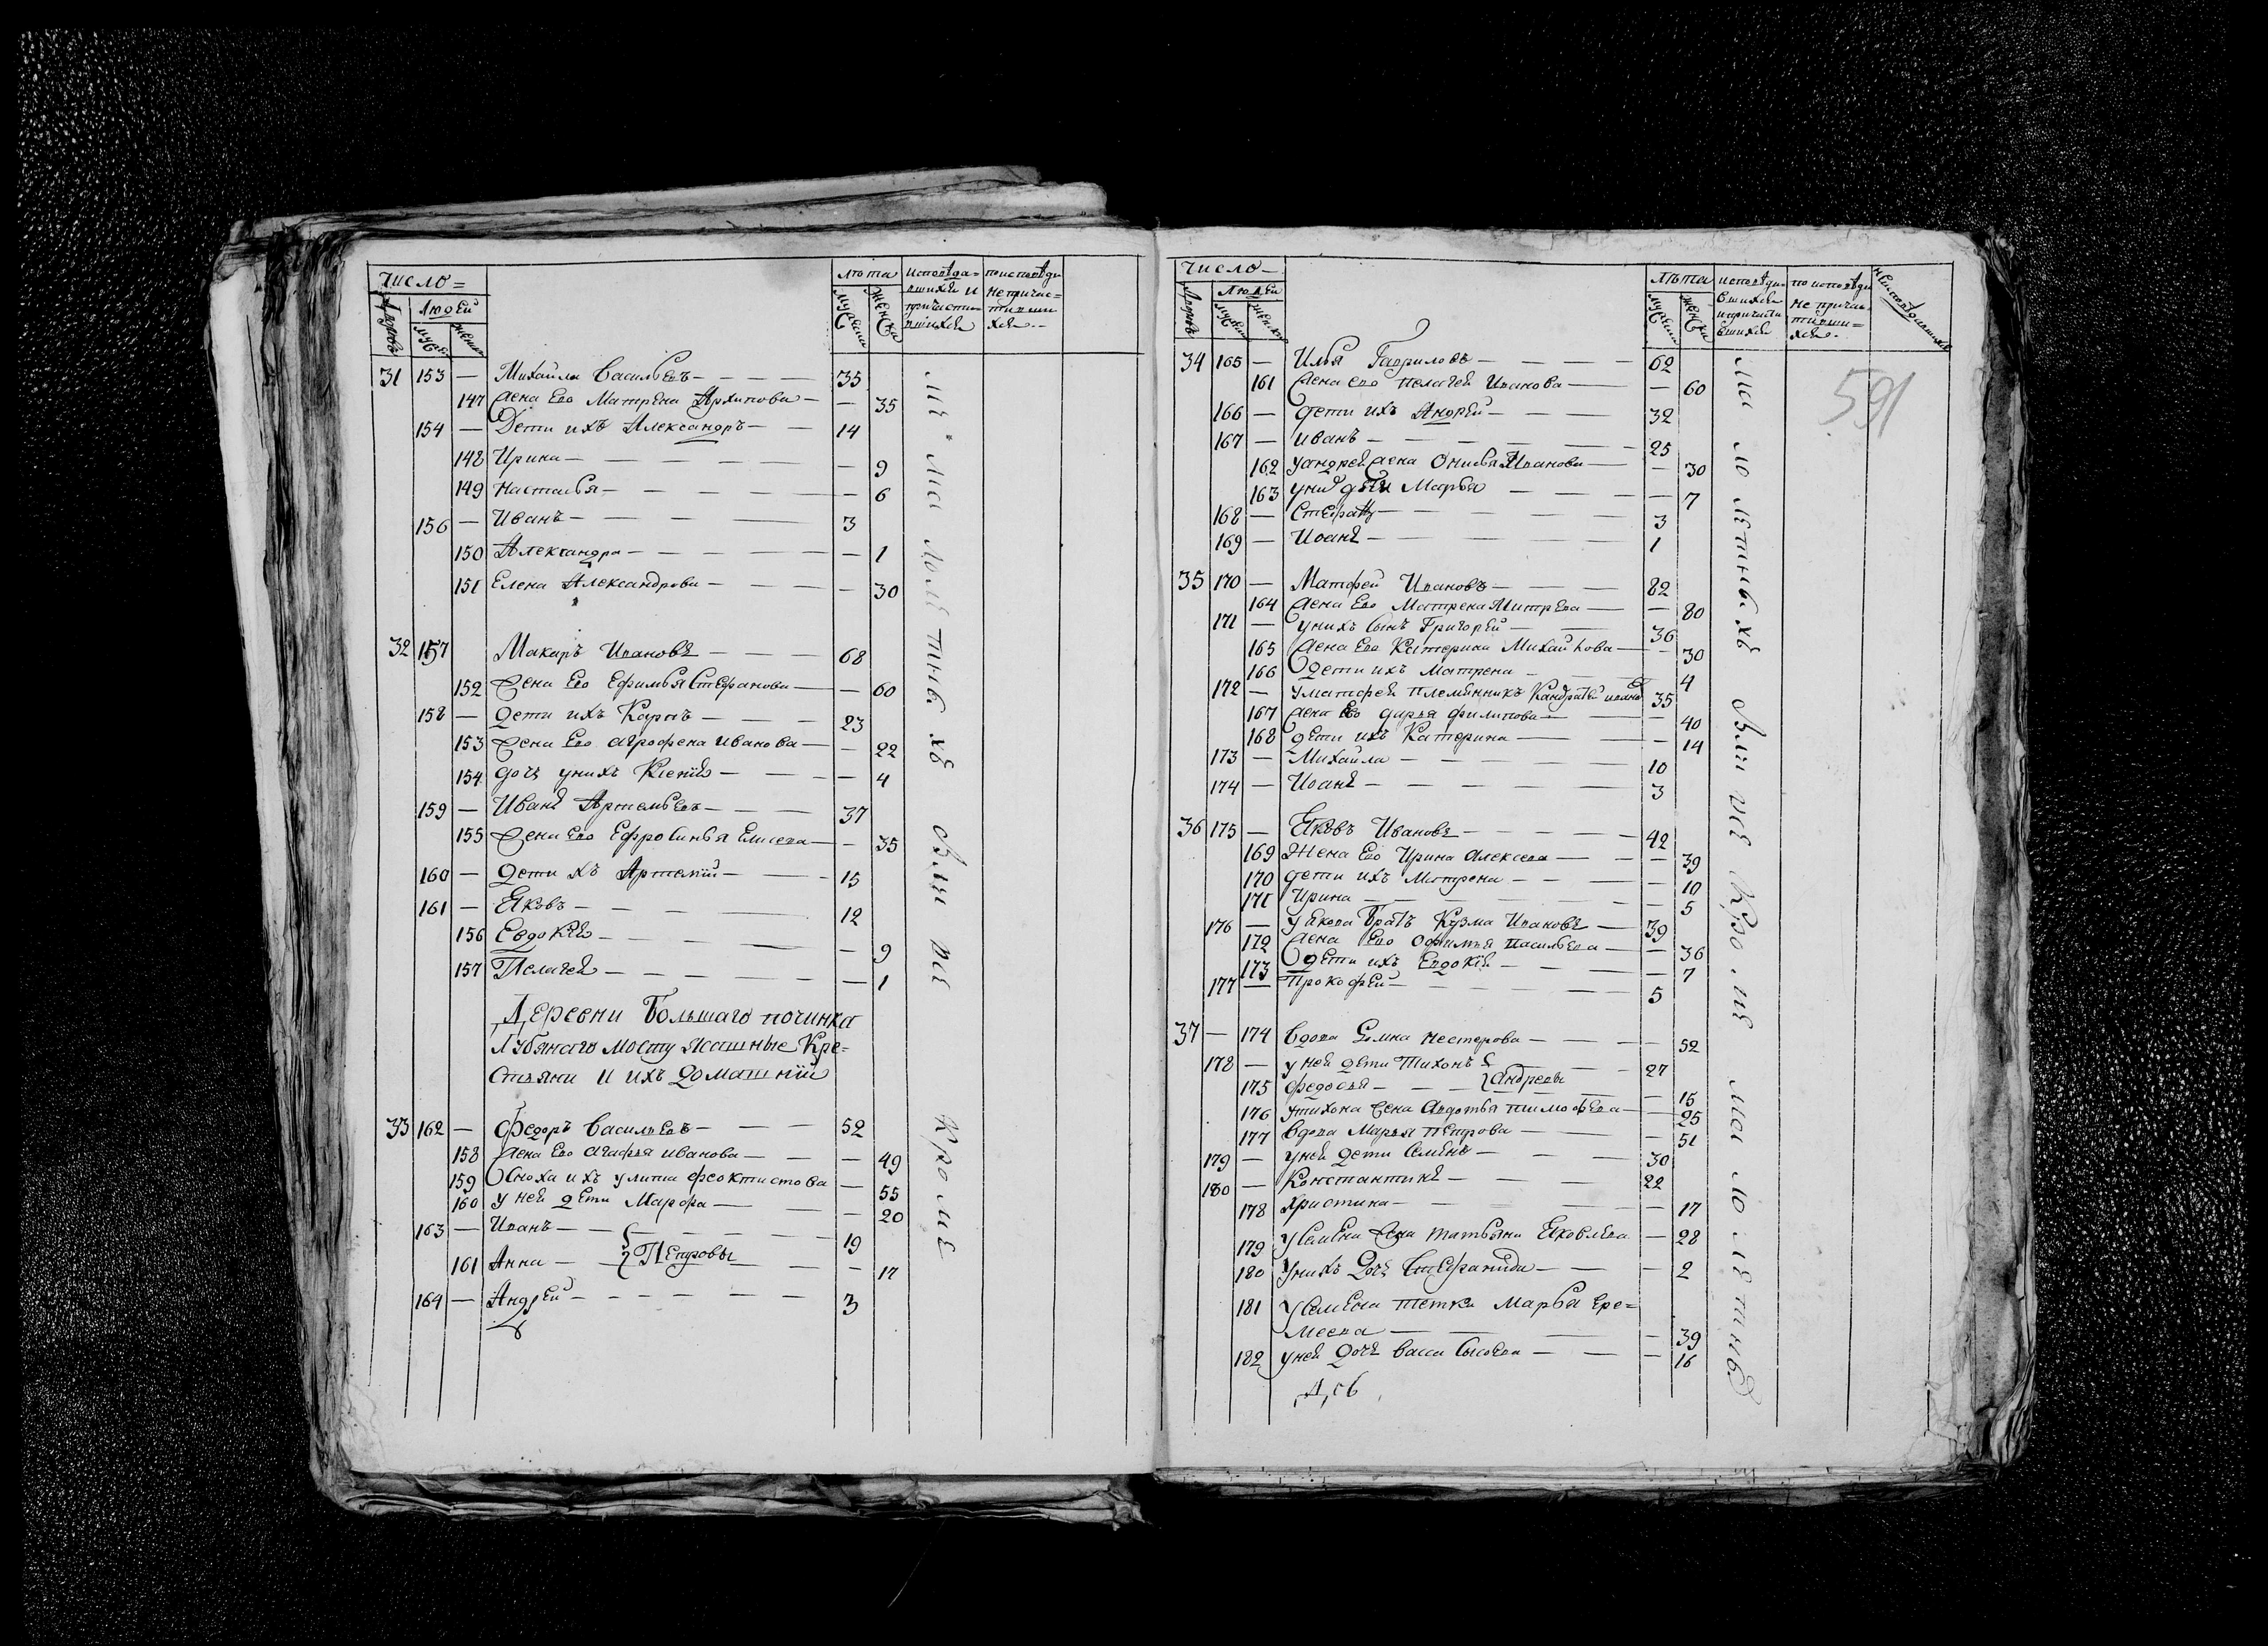 число=
дворовъ
людей
муска
женска
лѣта
муска
женска
исповѣда=
вшихся и
причасти=
вшихся
по исповѣди
не причас=
тивши
хся
31 153 — Михайла Васильевъ — 35
147 Жена Ево Матрена Архипова — 35
154 — Дети ихъ Александръ — 14
148 Ирина — 9
149 Настасья — 6
156 — Иванъ — 3
150 Александра — 1
151 Елена Александрова — 30
32 157 Макаръ Ивановъ — 68
152 Жена Ево Ефимья Стефанова — 60
158 — Дети ихъ Карпъ — 23
153 Жена Ево Агрофена Иванова — 22
154 дочь унихъ Ксенія — 4
159 — Иванъ Артемьевъ — 37
155 Жена Ево Ефросинья Елисеева — 35
160 — Дети ихъ Артемій — 15
161 — Яковъ — 12
156 Евдокія — 9
157 Пелагея — 1
Деревни Большаго починка
Лубянаго мосту ясашные Кре=
стьяни и ихъ домашніи
33 162 — Федоръ Васильевъ — 52
158 Жена Ево Агафья Иванова — 49
159 Сноха ихъ Улита Феоктистова — 55
160 у ней дети Марфа — 20
163 — Иванъ — 19
161 Анна — Петровы — 17
164 — Андрей — 3
Кроме
число
дворовъ
людей
муска
женска
лѣта
муска
женска
исповѣда
вшихся
и причасти
вшихся
по исповѣди
не причас
тивши=
хся
неисповѣдавшихся
591
34 165 — Илья Гавриловъ — 62
161 Жена ево Пелагея Иванова — 60
166 — Дети ихъ Андрей — 32
167 — Иванъ — 25
162 у Андрея Жена Онисья Иванова — 30
163 у них дети Марья — 7
168 — Стефанъ — 3
169 — Иоанъ — 1
35 170 — Матфей Ивановъ — 82
164 Жена Ево Матрена Митрева — 80
171 — унихъ сынъ Григорей — 36
165 Жена Ево Катерина Михайлова — 30
166 Дети ихъ Матрена — 4
172 — у Матфея племянникъ Кандратей Иванов 35
167 Жена Ево Дарья Филипова — 40
168 Дети ихъ Катерина — 14
173 — Михайла — 10
174 — Иоанъ — 3
36 175 — Яковъ Ивановъ — 42
169 Жена Ево Ирина Алексеева — 39
170 Дети ихъ Матрена — 10
171 Ирина — 5
176 — у Якова братъ Кузма Ивановъ — 39
172 Жена Ево Офимья Васильева — 36
173 Дети ихъ Евдокія — 7
177 — Прокофей — 5
37 — 174 Вдова Домна Нестерова — 52
178 — у ней дети Тихонъ — 27
175 Федосья — Андреевы — 15
176 у Тихона Жена Авдотья Тимофеева — 25
177 Вдова Марья Петрова — 51
179 — у ней дети Семенъ — 30
180 — Константинъ — 22
178 Христина — 17
179 у Семена Жена Татьяна Яковлева — 28
180 у нихъ Дочь Стефанида — 2
181 у Семена тетка Марья Ере=
меева — 39
182 у ней Дочь Васса Сысоева — 16